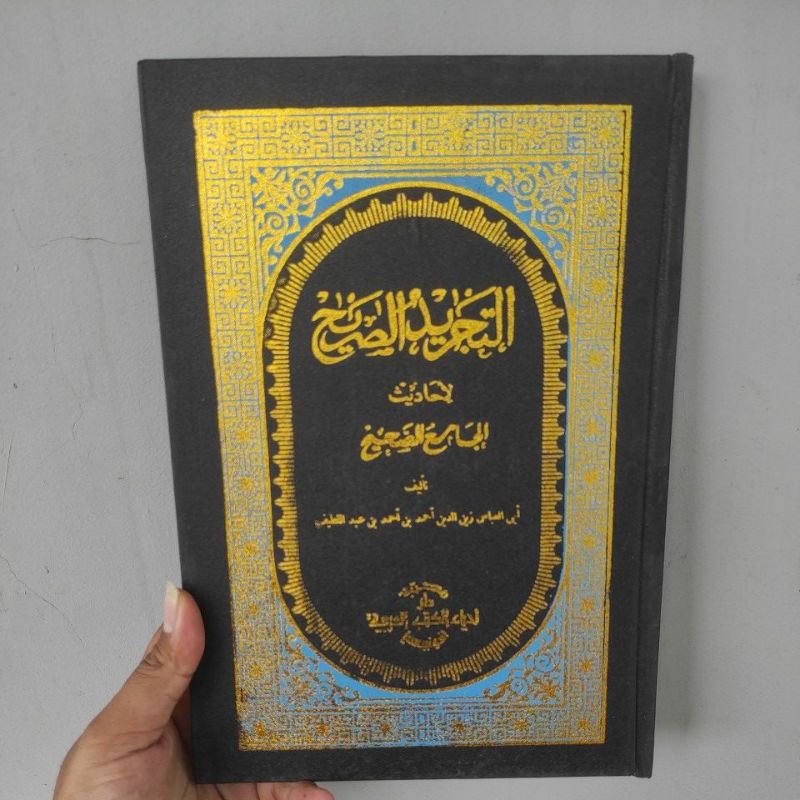 التجريد الصريح
لأحاديث
الجامع الصحيح
تأليف
أبي العباس زين الدين أحمد بن أحمد بن عبد اللطيف
دار
إحياء الكتب العربية